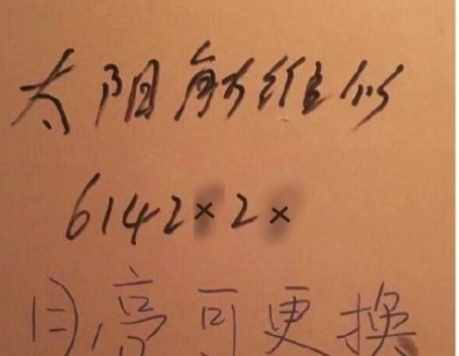 太阳能维修
6142×2×
日亭可更换